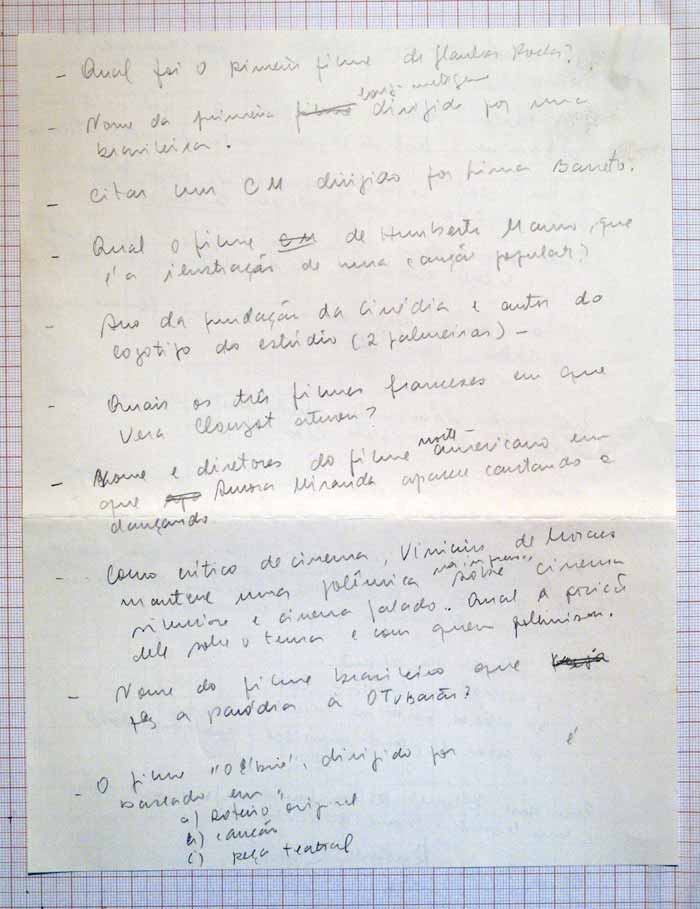 - Qual foi o primeiro filme de Glauber Rocha?
longa metragem
- Nome da primeira filme dirigido por uma
brasileira.
- Citar um CM dirigido por Lima Barreto.
- Qual o filme CM de Humberto Mauro, que
é a ilustração de uma canção popular?
- Ano da fundação da Cinédia e autor do
logotipo do estúdio (2 palmeiras) -
- Quais os três filmes franceses em que
Vera Clouzot atuou?
norte-
- Nome e diretores do filme americano em
que Aurora Miranda aparece cantando e
dançando
- Como crítico de cinema, Vinicius de Moraes
na imprensa
manteve uma polêmica sobre cinema
silencioso e cinema falado. Qual a posição
dele sobre o tema e com quem polemizou.
- Nome do filme brasileiro que
fez a paródia a O Tubarão?
- O filme "O Ébrio", dirigido por é
baseado em
a) roteiro original
b) canção
c) peça teatral